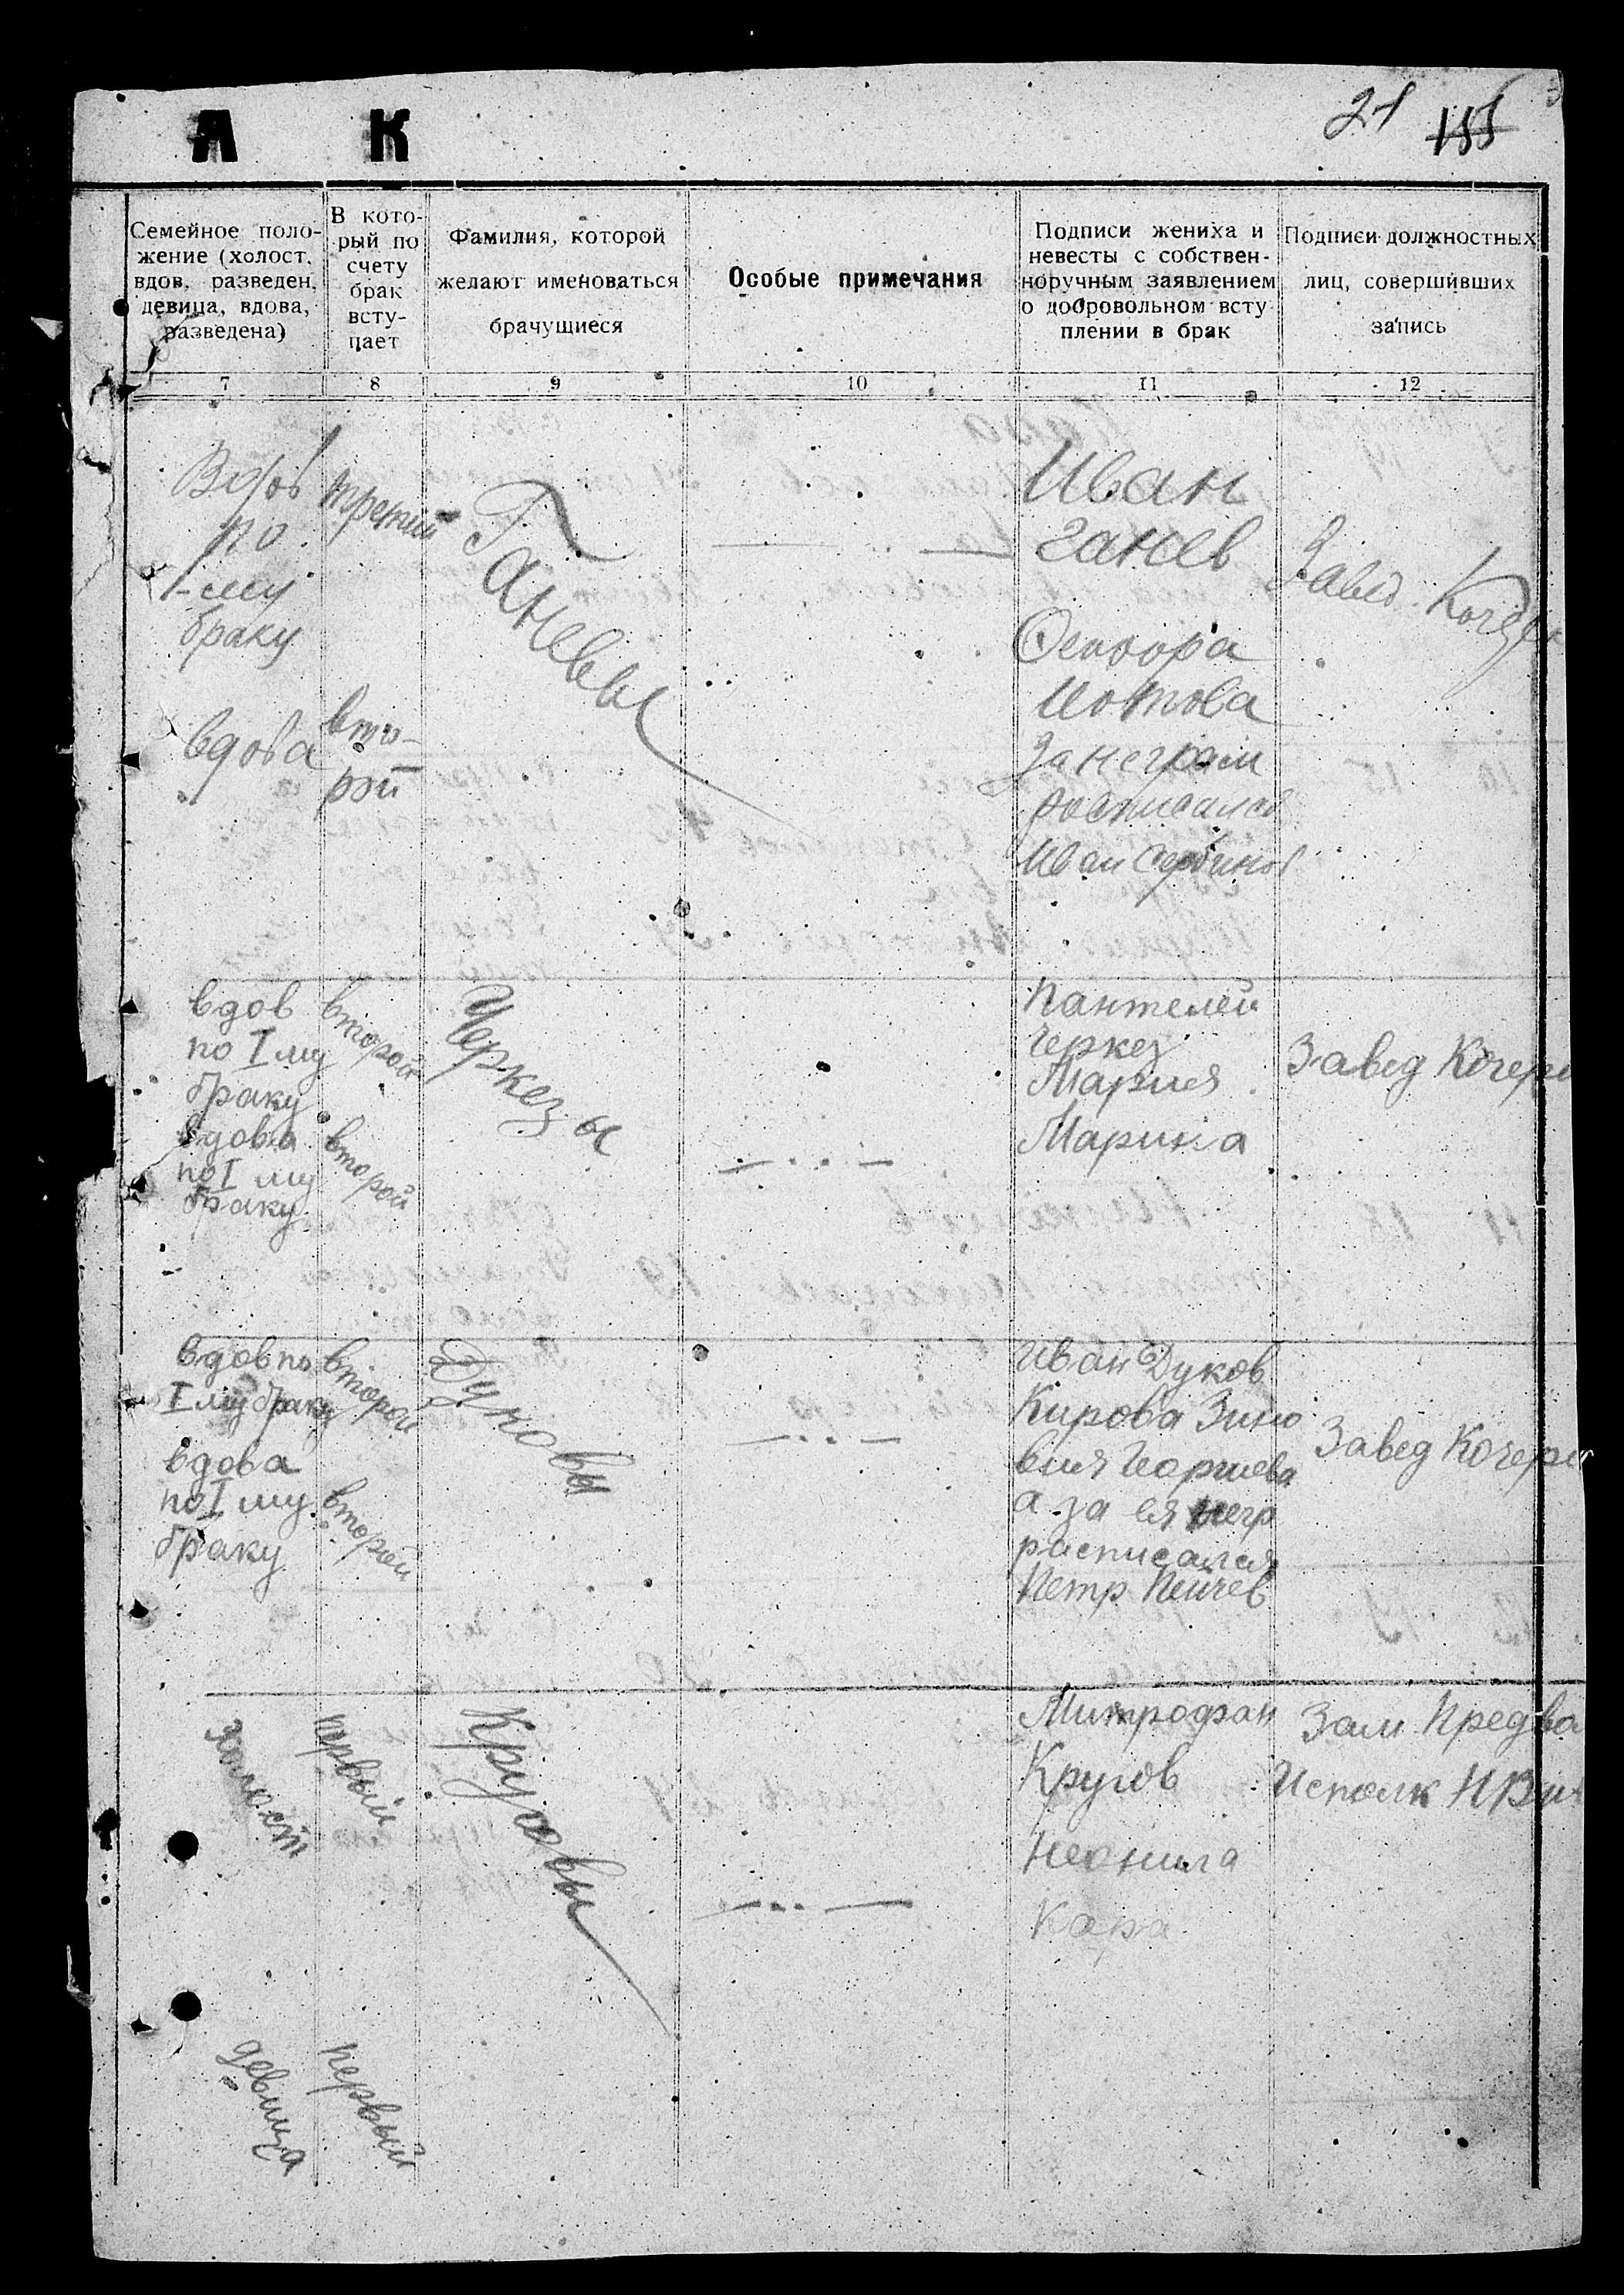 А К
21 155
Семейное поло-
жение (холост,
вдов, разведен,
девица, вдова,
разведена)
В кото-
рый по
счету
брак
всту-
пает
Фамилия, которой
желают именоваться
брачущиеся
Особые примечания
Подписи жениха и
невесты с собствен-
норучным заявлением
о добровольном всту
плении в брак
Подписи должностных
лиц, совершивших
запись
7 8 9 10 11 12
Вдов
по
1-му
браку
третий
Ганевы
Иван
Ганев
Завед.
вдова
вто-
рой
Иотова
За неграм
росписался
Иван
вдов
по I му
браку
второй
Черкезы
Пантелей
Черкез
Мария
Марина
Завед Кочер
вдова
по I му
браку
второй
вдов по
I му браку
второй
Дуковы
Иван Дуков
Кирова Зино
вия Георгиева
а за ея негр
расписался
Петр Пейчев
Завед Кочер
вдова
по I му
браку
второй
холост
первый
Круговы
Митрофан
Кругов
Неонила
Кара
Зам. Пред
Исполк
девица
первый